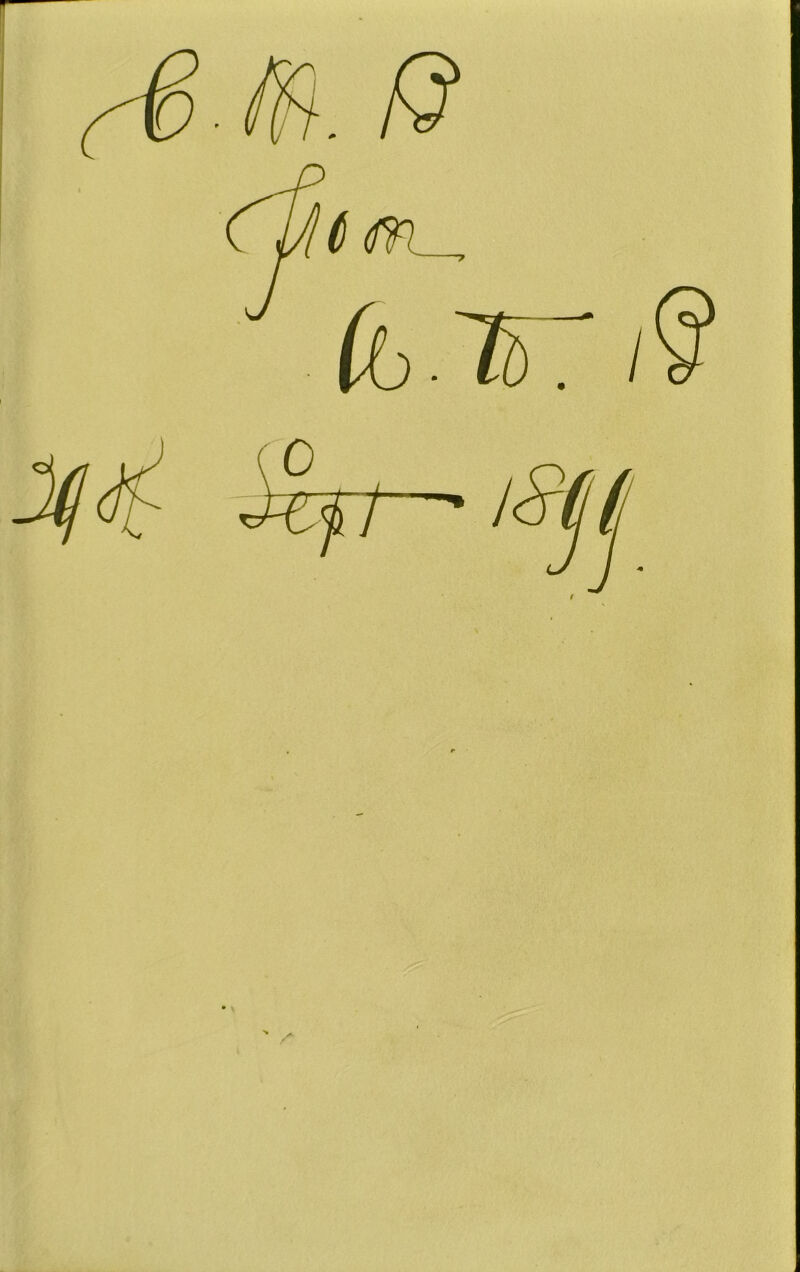 C. M. B
from
W. W. B
29th Sept 1899.